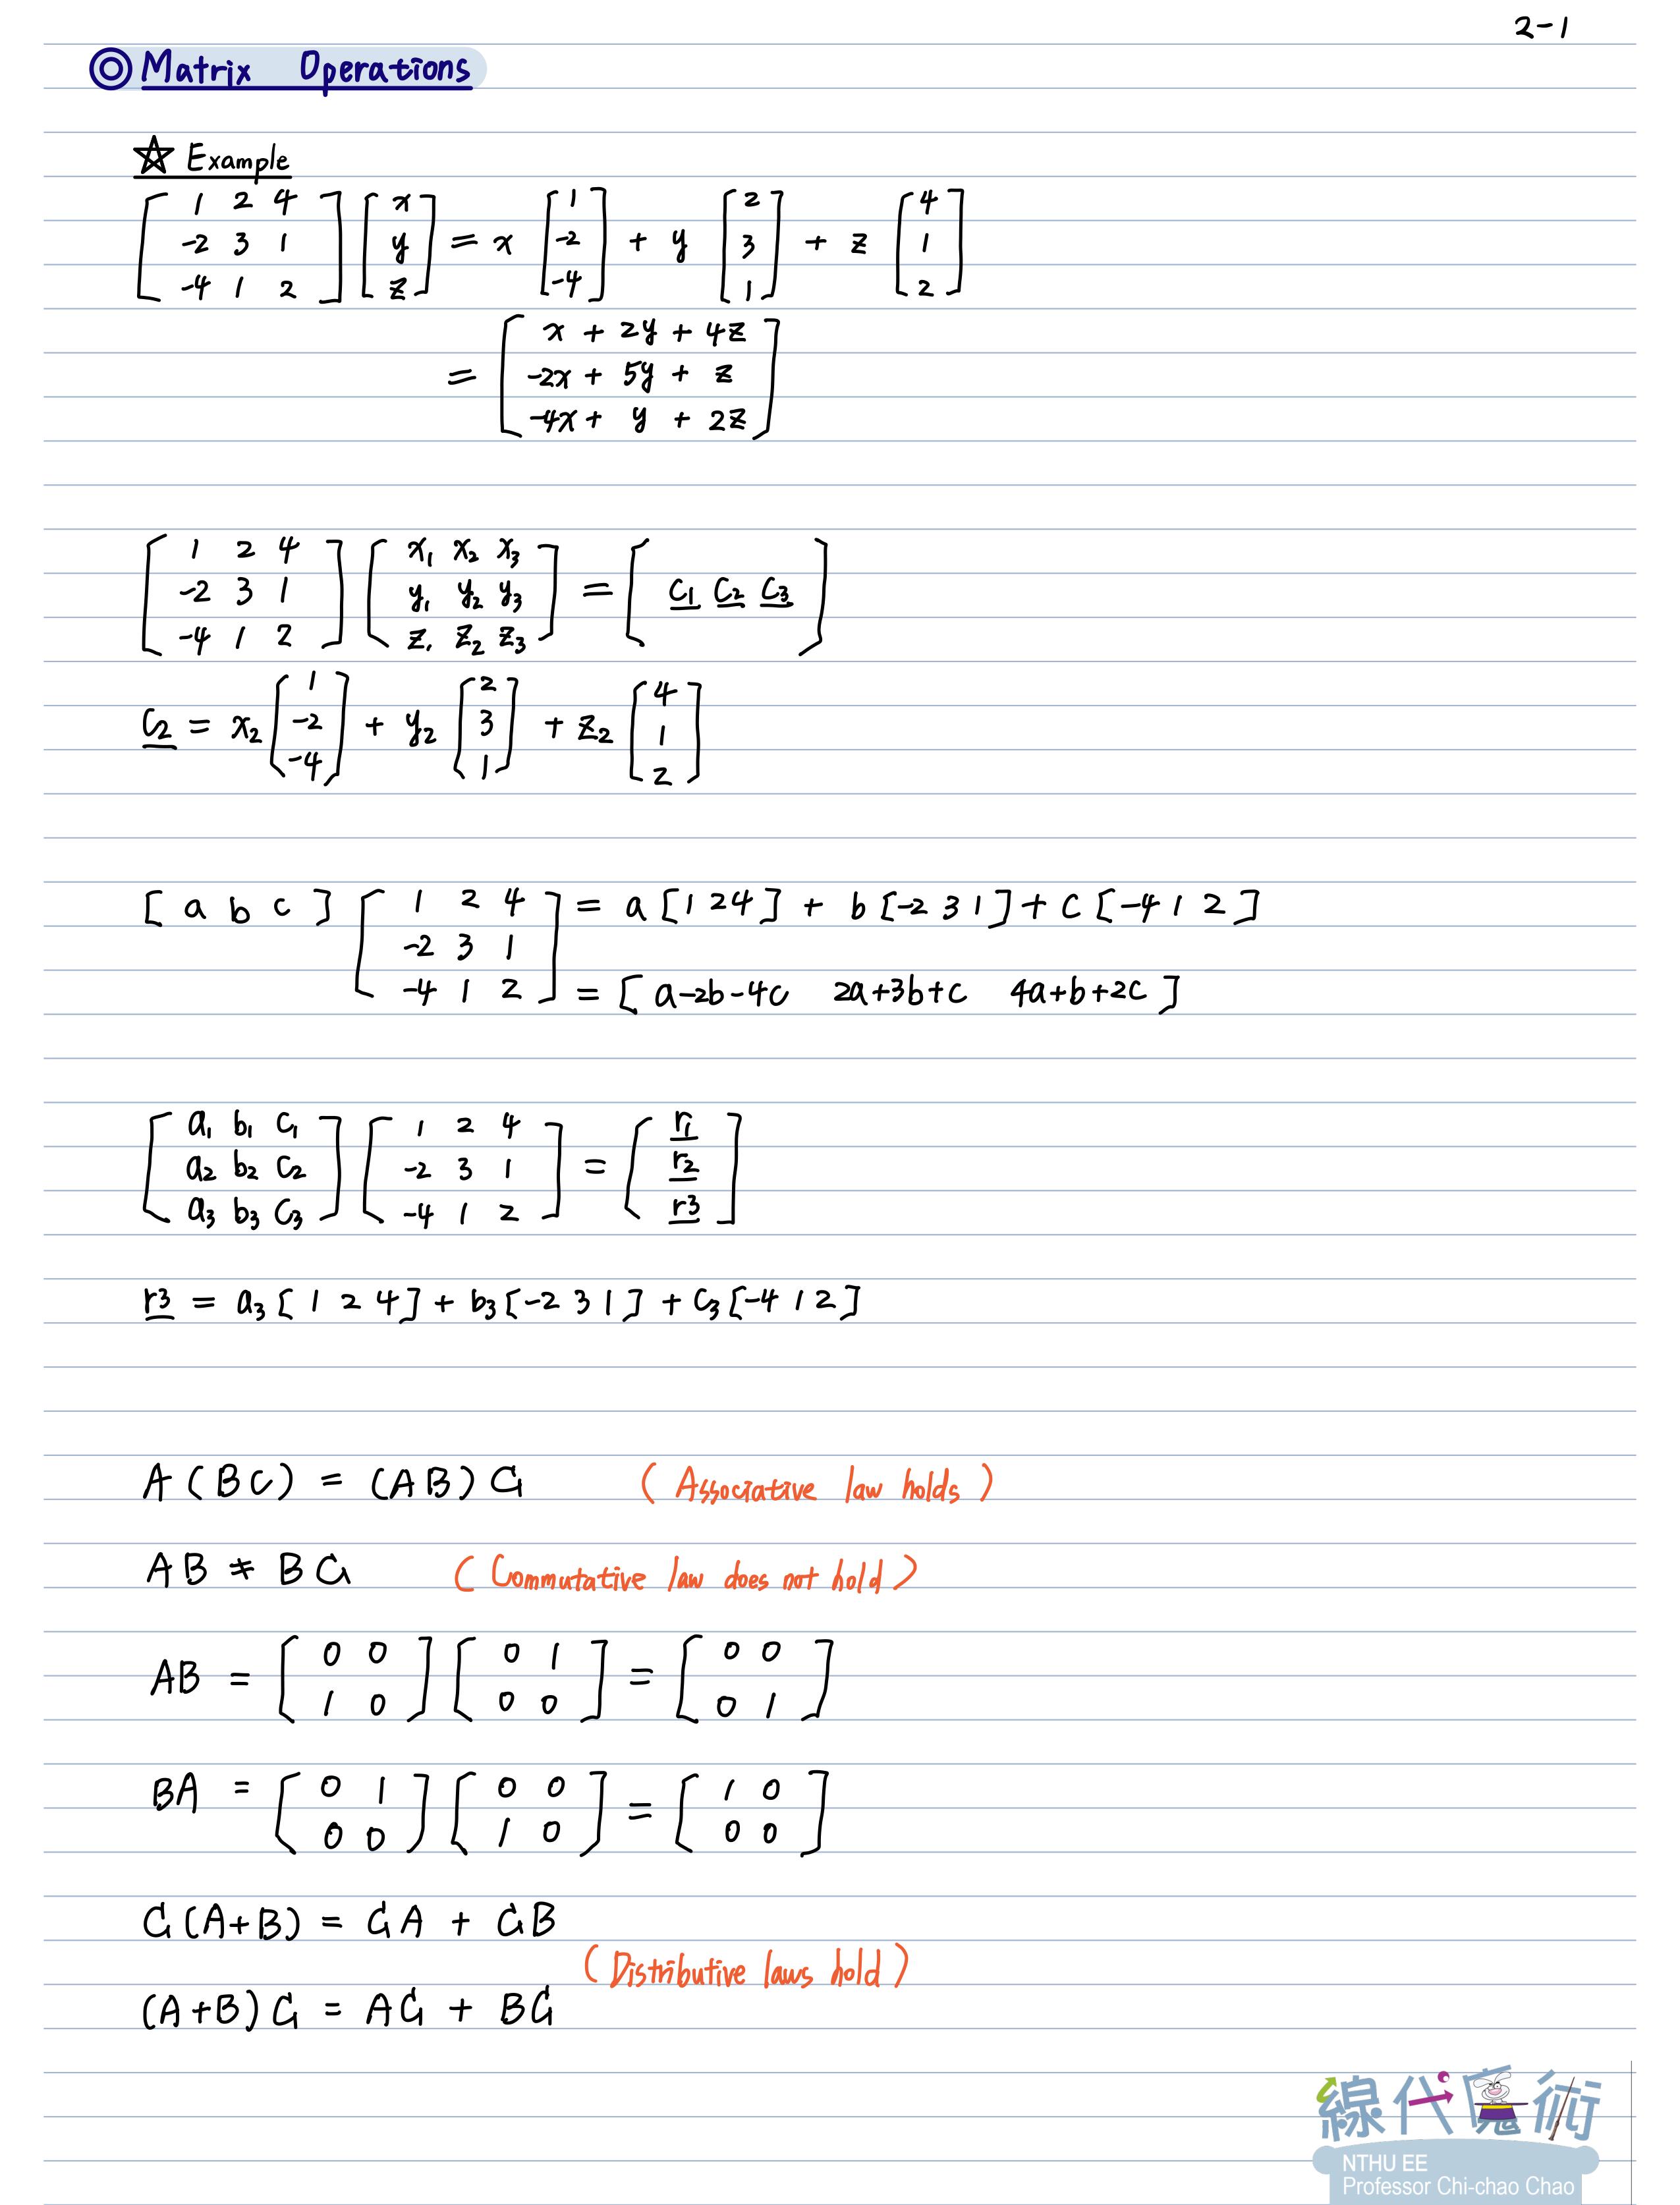 2-1
◎ Matrix Operations
☆ Example
[ 1 2 4 ; -2 3 1 ; -4 1 2 ] [ x ; y ; z ] = x [ 1 ; -2 ; -4 ] + y [ 2 ; 3 ; 1 ] + z [ 4 ; 1 ; 2 ]
= [ x + 2y + 4z ; -2x + 5y + z ; -4x + y + 2z ]
[ 1 2 4 ; -2 3 1 ; -4 1 2 ] [ x₁ x₂ x₃ ; y₁ y₂ y₃ ; z₁ z₂ z₃ ] = [ c₁ c₂ c₃ ]
c₂ = x₂ [ 1 ; -2 ; -4 ] + y₂ [ 2 ; 3 ; 1 ] + z₂ [ 4 ; 1 ; 2 ]
[ a b c ] [ 1 2 4 ; -2 3 1 ; -4 1 2 ] = a [ 1 2 4 ] + b [ -2 3 1 ] + c [ -4 1 2 ]
= [ a-2b-4c 2a+3b+c 4a+b+2c ]
[ a₁ b₁ c₁ ; a₂ b₂ c₂ ; a₃ b₃ c₃ ] [ 1 2 4 ; -2 3 1 ; -4 1 2 ] = [ r₁ ; r₂ ; r₃ ]
r₃ = a₃ [ 1 2 4 ] + b₃ [ -2 3 1 ] + c₃ [ -4 1 2 ]
A ( B C ) = ( A B ) C ( Associative law holds )
A B ≠ B C ( Commutative law does not hold )
AB = [ 0 0 ; 1 0 ] [ 0 1 ; 0 0 ] = [ 0 0 ; 0 1 ]
BA = [ 0 1 ; 0 0 ] [ 0 0 ; 1 0 ] = [ 1 0 ; 0 0 ]
C (A+B) = CA + CB
( Distributive laws hold )
(A+B) C = AC + BC
線代魔術
NTHU EE
Professor Chi-chao Chao